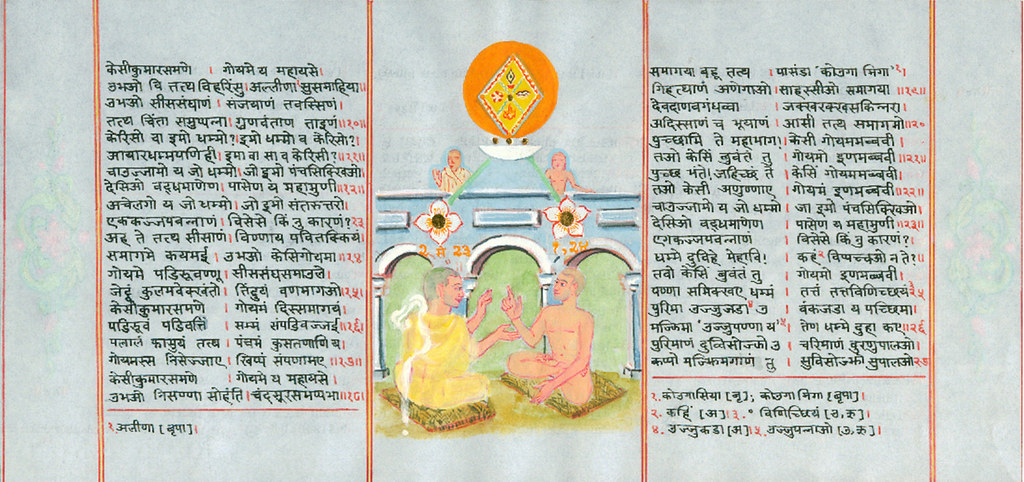 केसीकुमारसमणे । गोयमे य महायसे।
उभओ वि तत्थ विहरिंसु। अल्लीणा सुसमाहिया।
उभओ सीससंघाणं । संजयाणं तवस्सिणं।
तत्थ चिंता समुप्पन्ना। गुणवंताण ताइणं।।१०।।
केरिसो वा इमो धम्मो?। इमो धम्मो व केरिसो?।
आयारधम्मपणिही। इमा वा सा व केरिसी?।।११।।
चाउज्जामो य जो धम्मो। जो इमो पंचसिक्खिओ।
देसिओ वद्धमाणेण। पासेण य महामुणी।।१२।।
अचेलगो य जो धम्मो। जो इमो संतरुत्तरो।
एककज्जपवन्नाणं। विसेसे किं नु कारणं?।।१३
अह ते तत्थ सीसाणं। विण्णाय पवितक्कियं।
समागमे कयमई। उभओ केसिगोयमा।।१४
गोयमे पडिरूवण्णू। सीससंघसमाउले।
जेट्ठं कुलमवेक्खंतो। तिंदुयं वणमागओ।।१५।
केसीकुमारसमणे। गोयमं दिस्समागयं।
पडिरूवं पडिवत्तिं। सम्मं संपडिवज्जई।।१६।
पलालं फासुयं तत्थ। पंचमं कुसतणाणि य।
गोयमस्स निसेज्जाए। खिप्पं संपणामए।।१७।।
केसीकुमारसमणे । गोयमे य महायसे।
उभओ निसण्णा सोहंति। चंदसूरसमप्पभा।।१८।
१.अलीणा [बृपा]।
२ मे २३
१,२४
समागया बहू तत्थ । पासंडा 'कोउगा मिगा'१।
गिहत्थाणं अणेगाओ। साहस्सीओ समागया।।१९।
देवदाणवगंधव्वा । जक्खरक्खसकिन्नरा।
अदिस्साणं च भूयाणं। आसी तत्थ समागमो।।२०
पुच्छामि ते महाभाग!। केसी गोयममब्बवी।
तओ केसिं बुवंतं तु । गोयमो इणमब्बवी।।२१।
पुच्छ भंते! जहिच्छं ते। केसिं गोयममब्बवी।
तओ केसी अणुण्णाए। गोयमं इणमब्बवी।।२२।
चाउज्जामो य जो धम्मो। जो इमो पंचसिक्खिओ।
देसिओ वद्धमाणेण। पासेण य महामुणी।।२३।
एगकज्जपवन्नाणं । विसेसे किं नु कारणं?।
धम्मे दुविहे मेहावि!। कहं२ विप्पच्चओ न ते?।।
तओ केसिं बुवंतं तु । गोयमो इणमब्बवी।
पण्णा समिक्खए धम्मं। तत्तं तत्तविणिच्छयं३।।२५
पुरिमा उज्जुजडा४ उ । वंकजडा य पच्छिमा।
मज्झिमा 'उज्जुपण्णा य'५। तेण धम्मे दुहा कए।।२६
पुरिमाणं दुव्विसोज्झो उ। चरिमाणं दुरणुपालओ।
कप्पो मज्झिमगाणं तु। सुविसोज्झो सुपालओ।।२७
१.कोउगासिया [बृ]; कोउगा मिगा [बृपा]।
२. कहिं [अ]।३.° विणिच्छियं [उ,ऋ]।
४. उज्जुकडा [अ]।५.उज्जुपन्नाओ [उ,ऋ]।